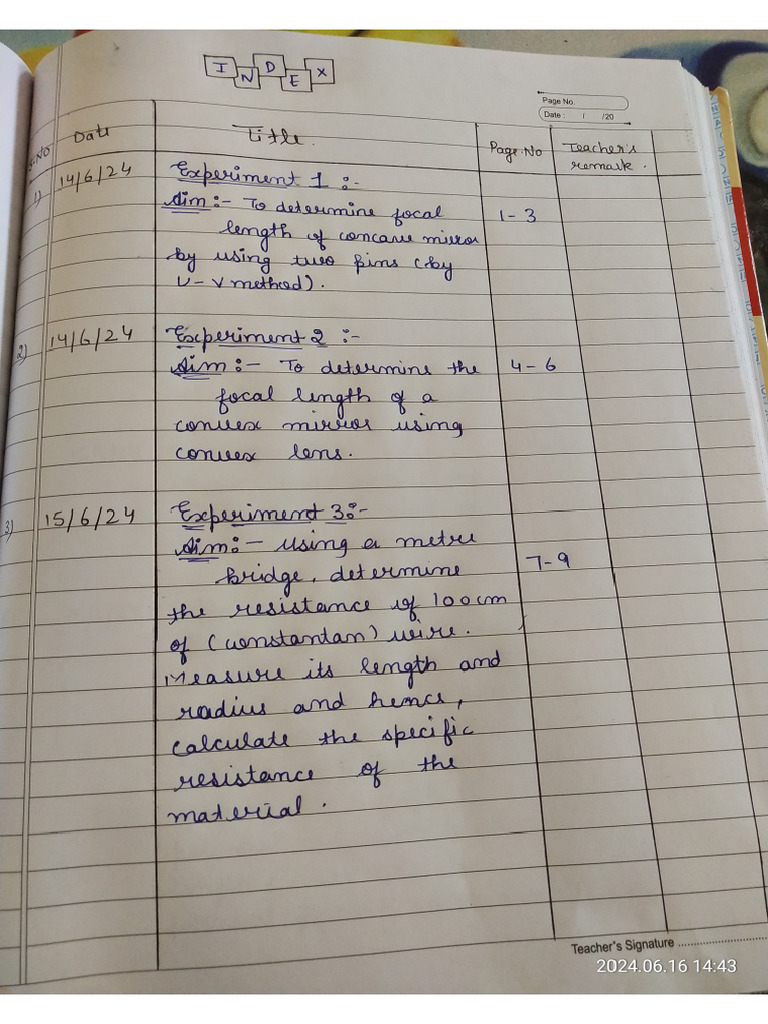 INDEX
Page No.
Date : / /20
S.NO Date Title. Page.No Teacher's remark.
1) 14/6/24 Experiment 1 :-
Aim :- To determine focal 1-3
length of concave mirror
by using two pins (by
U-V method).
2) 14/6/24 Experiment 2 :-
Aim :- To determine the 4-6
focal length of a
convex mirror using
convex lens.
3) 15/6/24 Experiment 3:-
Aim:- Using a metre 7-9
bridge, determine
the resistance of 100cm
of (constantan) wire.
Measure its length and
radius and hence,
calculate the specific
resistance of the
material.
Teacher's Signature
2024.06.16 14:43